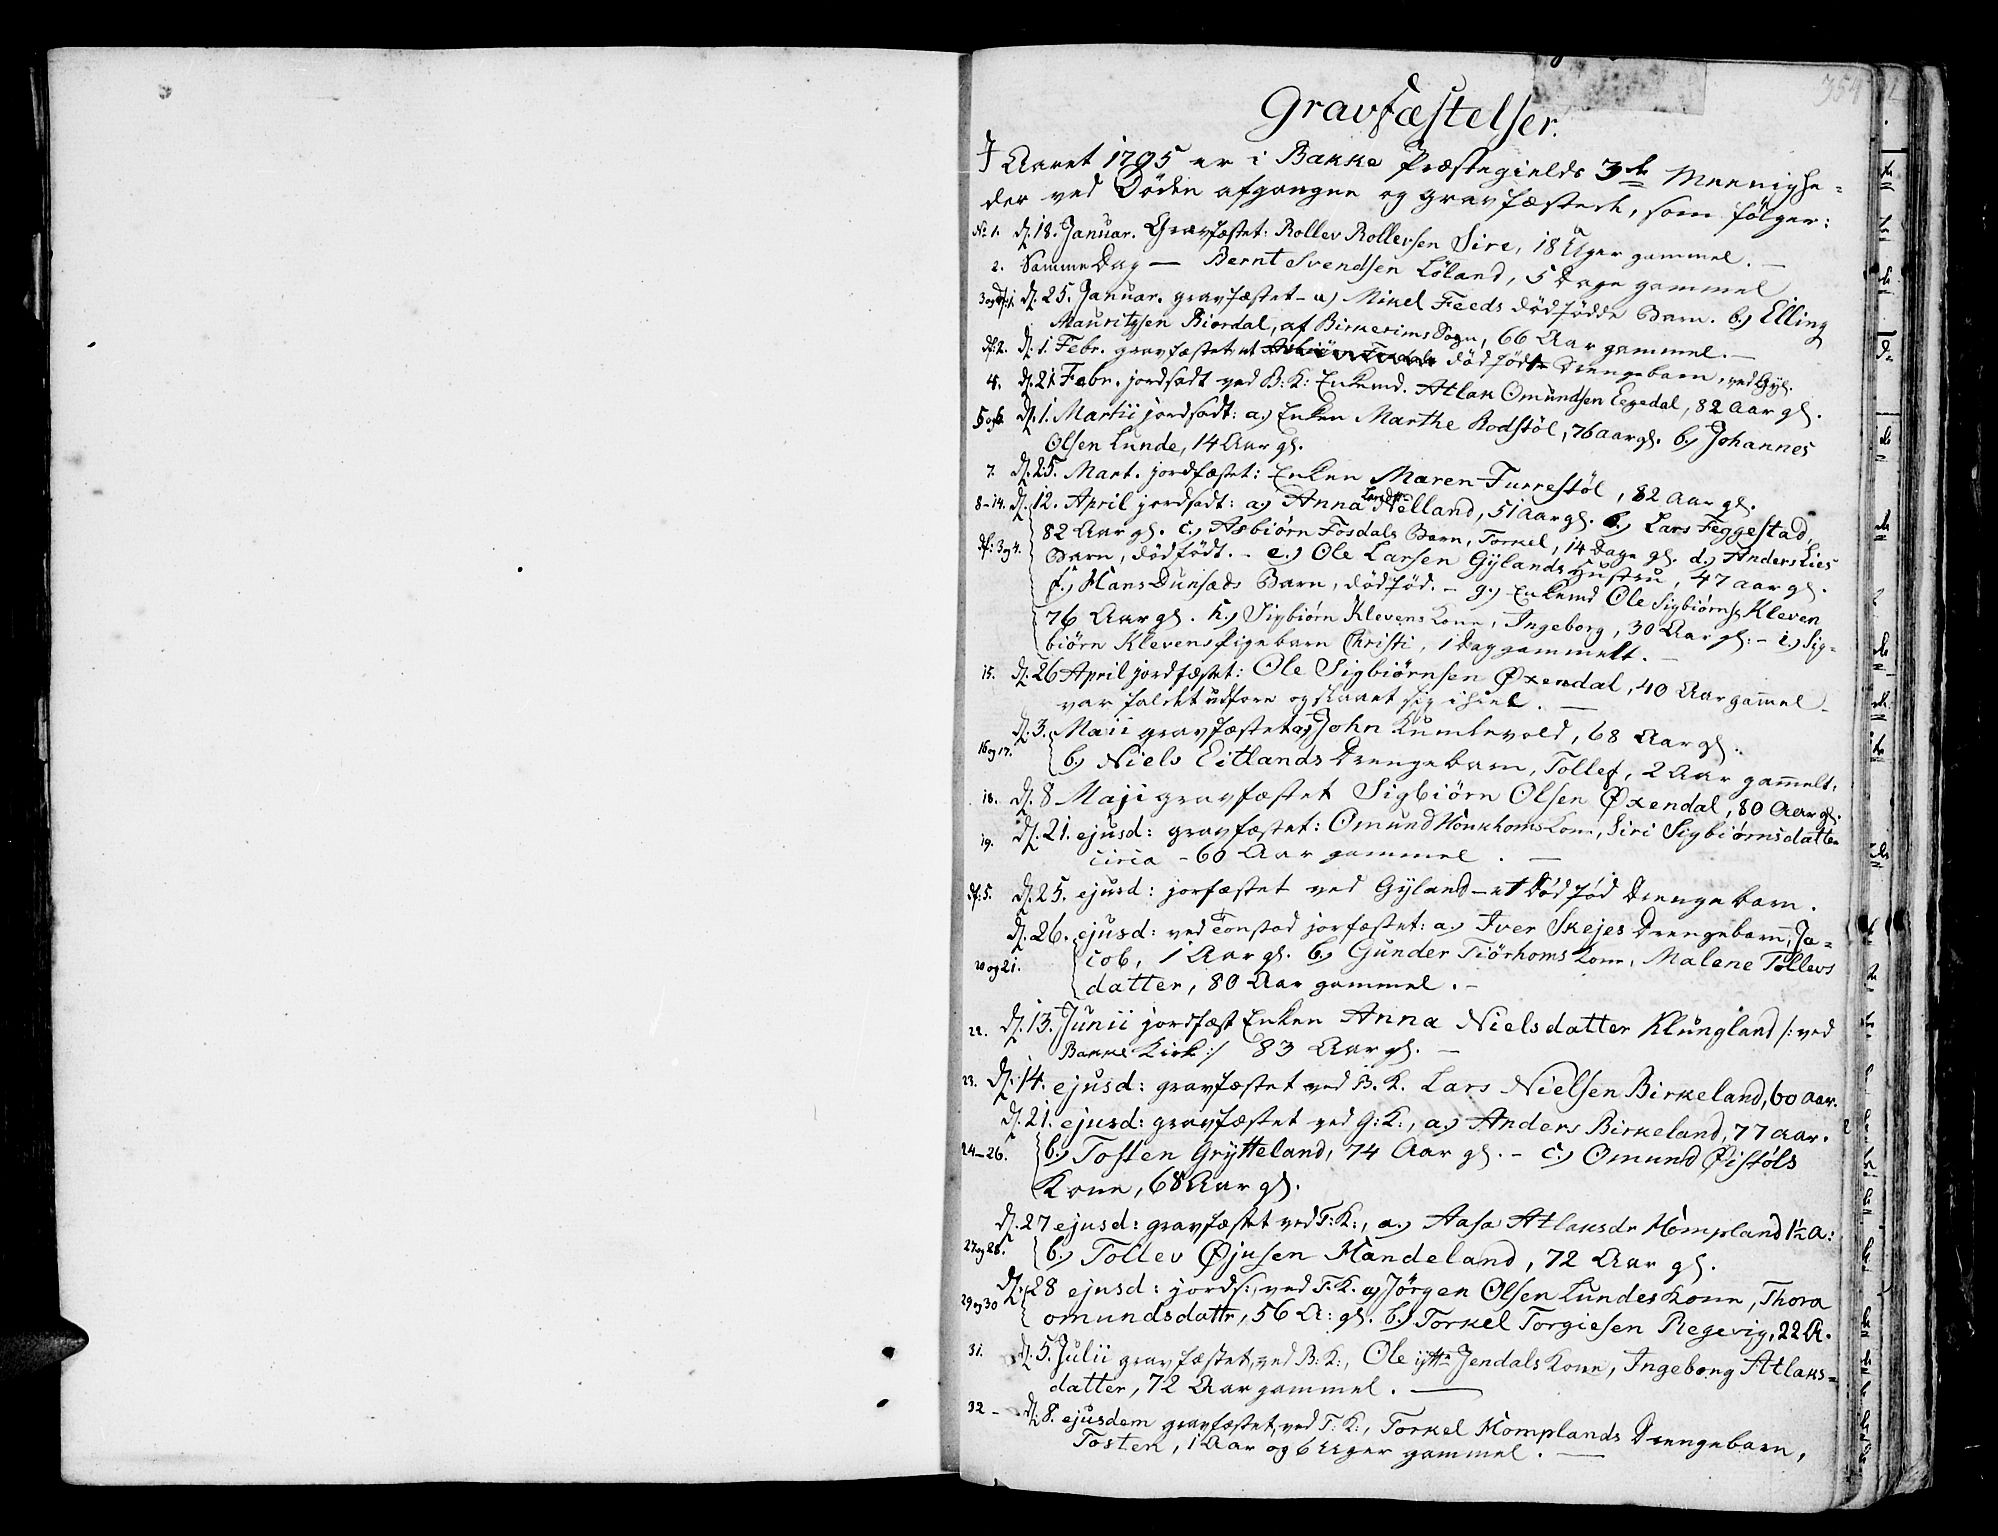 354
Gravfæstelser.
I Aaret 1795 er i Bakke Præstegields 3de Meenighe-
der ved Døden afgangne og gravfæstede, som følger:
No 1. d: 18. Januar. Gravfæstet: Rollev Rollevsen Sire, 18 Uger gammel. —
2. Samme Dag — Bernt Svendsen Løland, 5 Dage gammel
3 og df: 1. d: 25. Januar. gravfæstet - a) Mikel Feeds dødfødde Barn. b.) Elling
Mauritzsen Biordal, af Birkerims Sogn, 66 Aar gammel. —
df: 2. d: 1. Febr. gravfæstet, et dødfødt Drengebarn, ved Gyl.
4. d: 21 Febr. jordsadt ved B: K: Enkemd. Atlak Omundsen Egedal, 82 Aar gl.
5 og 6. d: 1. Martii jordsadt: a.) Enken Marthe Rodstøl, 76 aar gl. b.) Johannes
Olsen Lunde, 14 Aar gl.
7. d: 25. Mart. jordfæstet: Enken Maren Furrestøl, 82 aar gl.
8-14. d: 12. April jordsadt: a.) Anna Larsdtr Nelland, 51 Aar gl. b.) Lars Feggestad,
82 Aar gl. c.) Asbiørn Fosdals Barn, Torkel, 14 Dage gl. d.) Anders Lies
df: 3 og 4. Barn, dødfødt. - e.) Ole Larsen Gylands Hustru, 47 aar gl.
f.) Hans Dunsæds Barn, dødfød. - g.) Enkemd Ole Sigbiørns. Kleven
76 Aar gl. h.) Sigbiørn Klevens Kone, Ingeborg, 30 Aar gl: - i.) Sig-
biørn Klevens Pigebarn Christi, 1 Dag gammelt. —
15. d: 26 April jordfæstet: Ole Sigbiørnsen Øxendal, 40 Aar gamel -
var faldet udfore og slaaet sig ihiel. —
d: 3. Maii gravfæstet a) John Kumlevold, 68 Aar gl:
16 og 17. b.) Niels Eitlands Drengebarn, Tollef, 2 Aar gamelt.
18. d: 8 Maji gravfæstet Sigbiørn Olsen Øxendal, 80 Aar gl.
19. d: 21. ejusd: gravfæstet: Omund Honkhoms Kone, Siri Sigbiørnsdatter
circa - 60 Aar gammel. —
df: 5. d: 25. ejusd: jorfæstet ved Gyland - et Dødfød Drengebarn.
d: 26. ejusd: ved Tonstad jorfæstet: a.) Iver Skejes Drengebarn, Ja-
20 og 21. cob, 1 Aar gl. b.) Gunder Tiørhoms Kone, Malene Tollevs
datter, 80 Aar gammel. -
22. d: 13. Junii jordfæst Enken Anna Nielsdatter Klungland /: ved
Bakke Kirk :/ 83 Aar gl. —
23. d: 14. ejusd: gravfæstet ved B. K. Lars Nielsen Birkeland, 60 aar.
d: 21. ejusd: gravfæstet ved G: K:, a.) Anders Birkeland, 77 aar.
24-26. b.) Tosten Grytteland, 74 Aar gl. - c.) Omund Øistøls
Kone, 68 Aar gl.
d: 27 ejusd: gravfæstet ved T: K:, a.) Aasa Atlaksdr Hompland 1½ A:
27 og 28. b.) Tollev Øjusen Handeland, 72 Aar gl.
d: 28 ejusd: jords:, ved T. K. a) Jørgen Olsen Lundes Kone, Thora
29 og 30 omundsdattr, 56 A: gl. b.) Torkel Torgiesen Regevig, 22 A.
31. d: 5. Julii gravfæstet, ved B: K:, Ole ÿttr Jendals Kone, Ingeborg Atlaks-
datter, 72 Aar gammel. —
32 - d: 8. ejusdem gravfæstet, ved T: K:, Torkel Homplands Drengebarn,
Tosten, 1 Aar og 6 Uger gammel. —